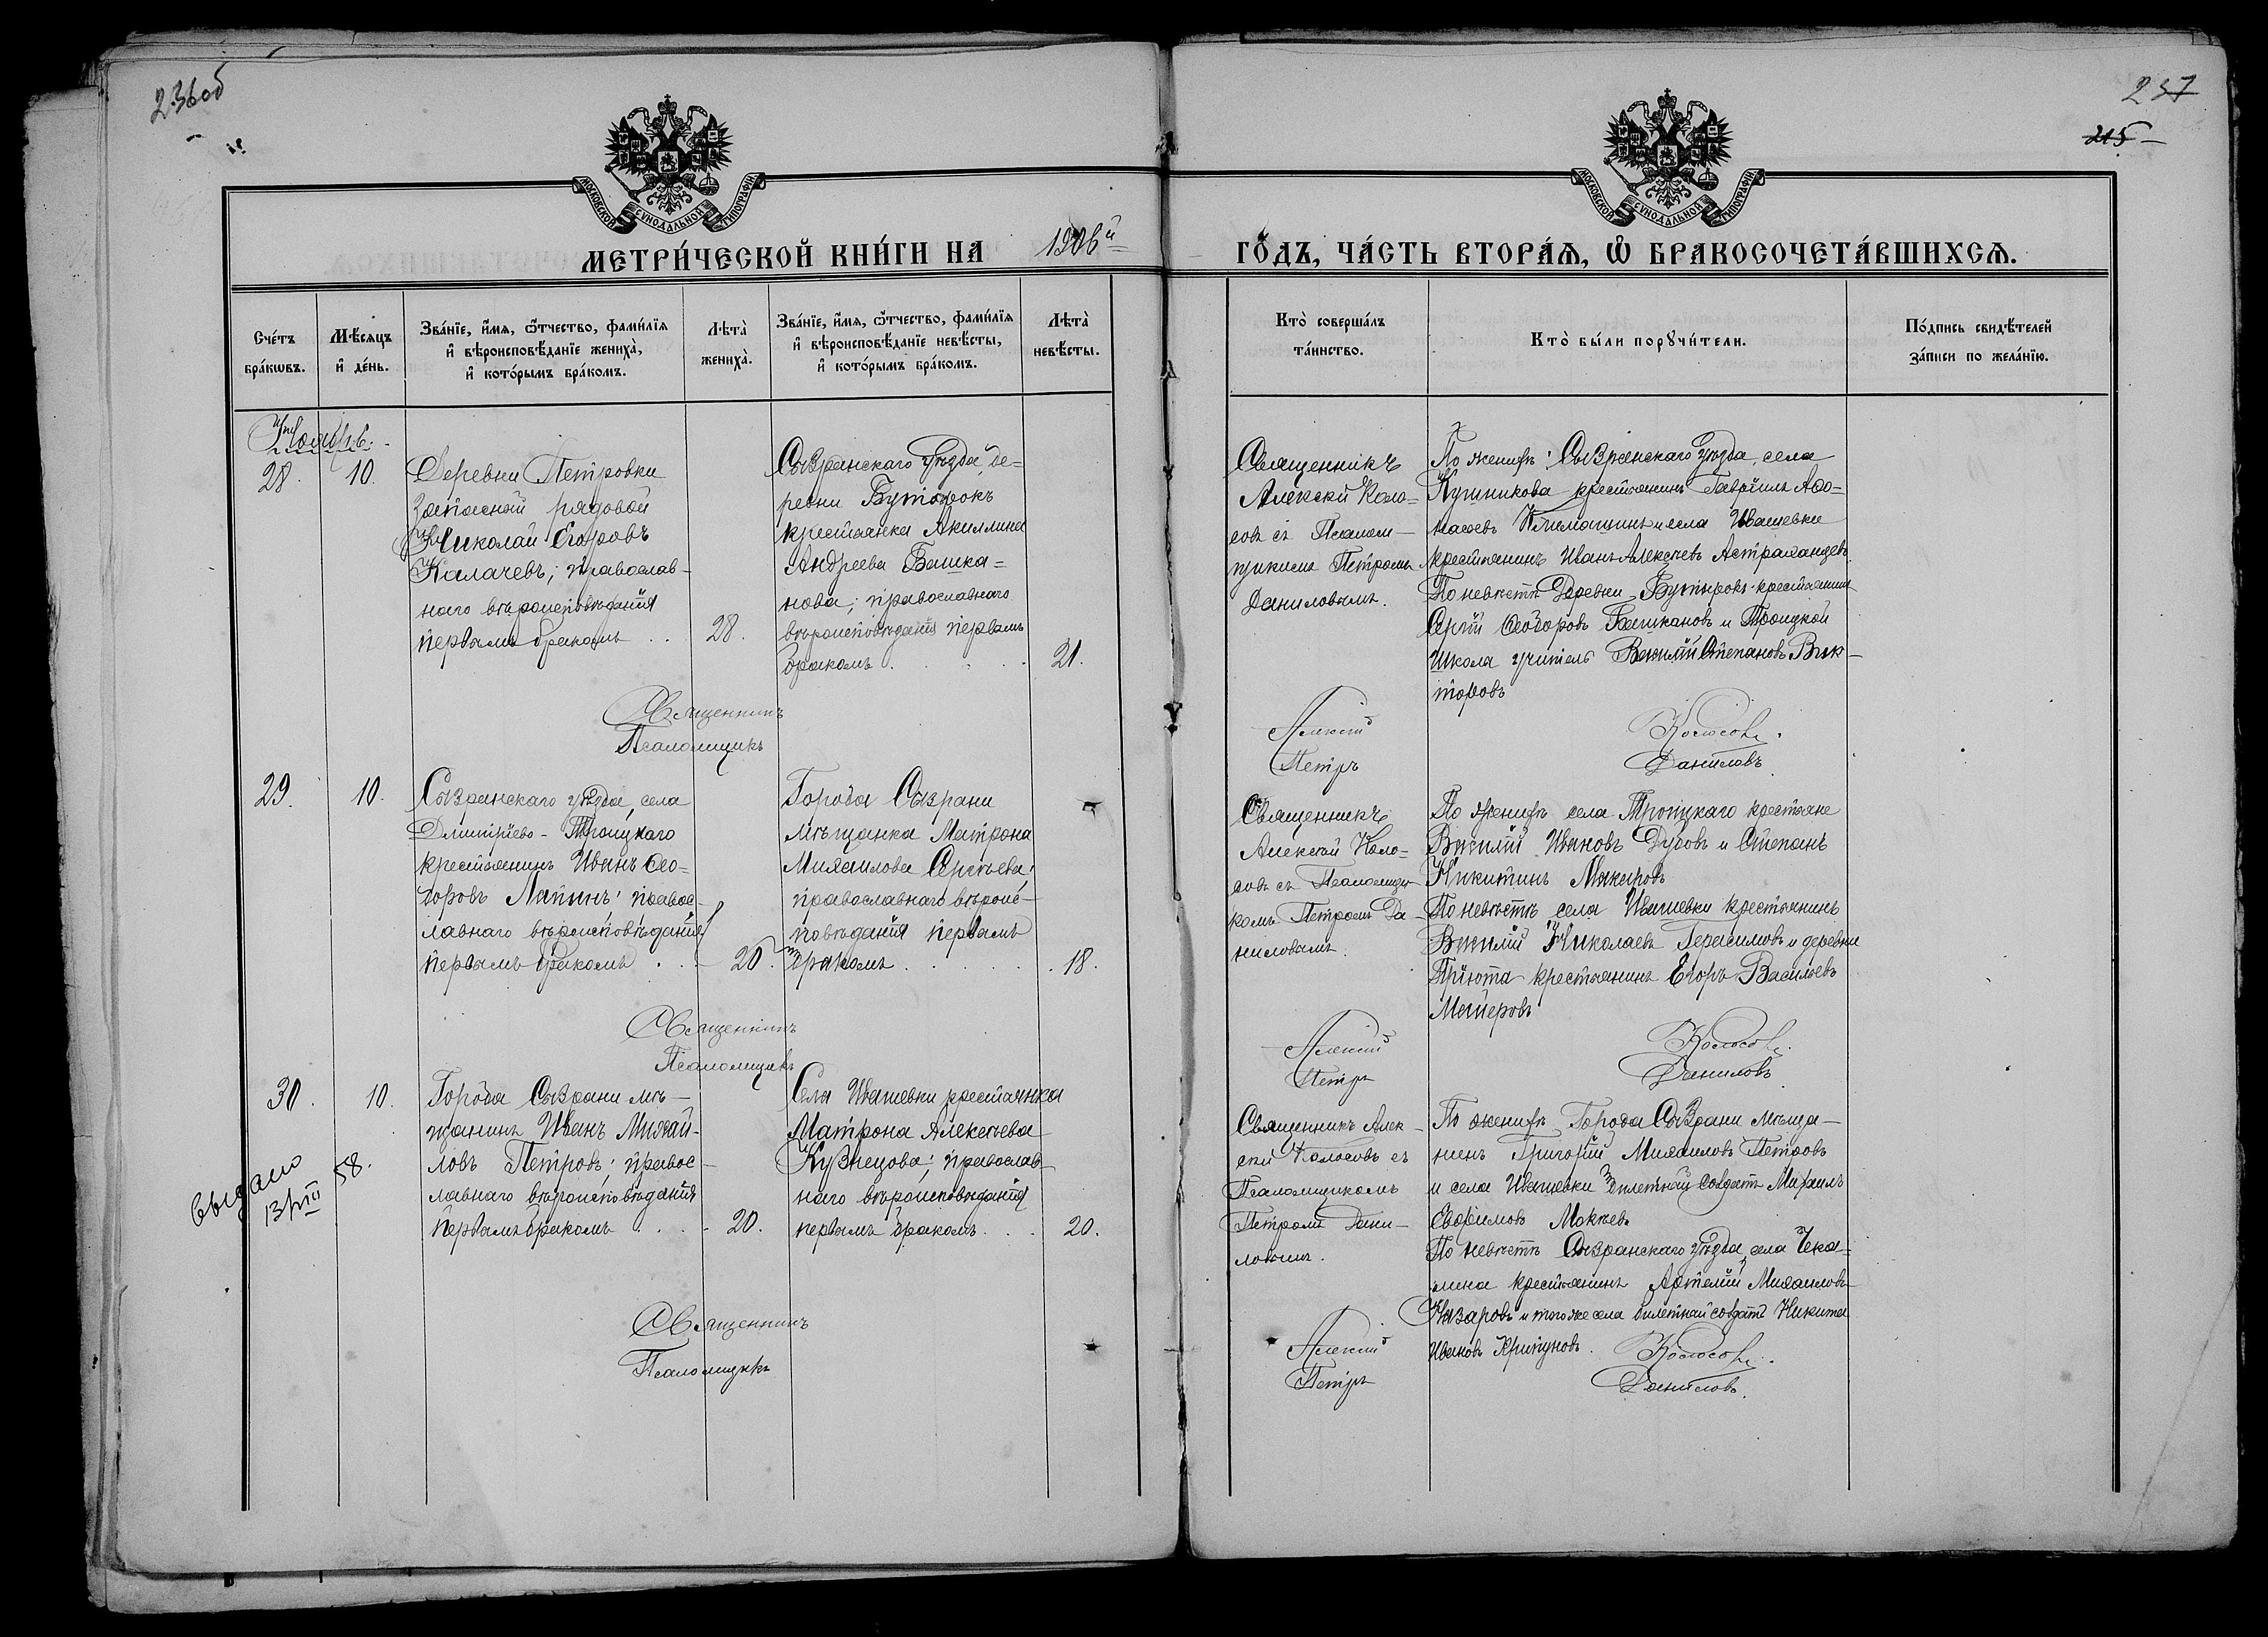 236об
237
215
МОСКОВСКОЙ СУНОДАЛЬНОЙ ТИПОГРАФІИ
МОСКОВСКОЙ СУНОДАЛЬНОЙ ТИПОГРАФІИ
МЕТРИ́ЧЕСКОЙ КНИ́ГИ НА 1906й
ГО́ДЪ, ЧА́СТЬ ВТОРА́Ѧ, Ѽ БРАКОСОЧЕТА́ВШИХСѦ.
Сче́тъ
бра́кѡвъ.
Мѣ́сѧцъ
и҆ де́нь.
Зва́нїе, и҆́мѧ, ѻ҆́тчество, фами́лїѧ
и҆ вѣроисповѣ́данїе жениха̀,
и҆ кото́рымъ бра́комъ.
Лѣта̀
жениха̀.
Зва́нїе, и҆́мѧ, ѻ҆́тчество, фами́лїѧ
и҆ вѣроисповѣ́данїе невѣ́сты,
и҆ кото́рымъ бра́комъ.
Лѣта̀
невѣ́сты.
Кто̀ соверша́лъ
та́инство.
Кто̀ бы́ли порꙋчи́тели.
По́дпись свидѣ́телей
за́писи по жела́нїю.
Ноябрь.
28.
10.
Деревни Петровки
запасной рядовой
Николай Егоровъ
Калачевъ; православ-
наго вѣроисповѣданія
первымъ бракомъ . .
28.
Сызранскаго уѣзда, де-
ревни Бутырокъ
крестьянка Акилина
Андреева Башка=
нова; православнаго
вѣроисповѣданія первымъ
бракомъ . . . . .
21.
Священникъ
Алексѣй Коло=
совъ съ Псалом-
щикомъ Петромъ
Даниловымъ.
По женихѣ: Сызранскаго уѣзда, села
Кушникова крестьянинъ Гавріилъ Афо=
насьевъ Климашинъ и села Ивашевки
крестьянинъ Иванъ Алексѣевъ Астраханцевъ.
По невѣстѣ Деревни Бутырокъ крестьянинъ
Сергій Ѳеодоровъ Башкановъ и Троицкой
школа учитель Василій Степановъ Вик-
торовъ
Священникъ
Псаломщикъ
Алексій
Петръ
Колосовъ.
Даниловъ
29.
10.
Сызранскаго уѣзда, села
Дмитріево-Троицкаго
крестьянинъ Иванъ Ѳео-
доровъ Лапинъ; правос-
лавнаго вѣроисповѣданія
первымъ бракомъ . . .
20.
Города Сызрани
мѣщанка Матрона
Михаилова Сергѣева;
православнаго вѣроис-
повѣданія первымъ
бракомъ . . . . .
18.
Священникъ
Алексѣй Коло=
совъ съ Псаломщи-
комъ Петромъ Да-
ниловымъ.
По женихѣ села Троицкаго крестьяне
Василій Ивановъ Дуровъ и Степанъ
Никитинъ Макаровъ
По невѣстѣ села Ивашевки крестьянинъ
Василій Николаевъ Герасимовъ и деревни
Пріюта крестьянинъ Егоръ Васильевъ
Священникъ
Псаломщикъ
Алексій
Петръ
Колосовъ.
Даниловъ
30.
10.
Города Сызрани мѣ-
щанинъ Иванъ Михай-
ловъ Петровъ; правос-
лавнаго вѣроисповѣданія
первымъ бракомъ . . .
20.
Села Ивашевки крестьянка
Матрона Алексѣева
Кузнецова; православ-
наго вѣроисповѣданія
первымъ бракомъ . . .
20.
Священникъ Алек-
сѣй Колосовъ съ
Псаломщикомъ
Петромъ Дани-
ловымъ.
По женихѣ Города Сызрани мѣща-
нинъ Григорій Михаиловъ Петровъ
и села Ивашевки билетный солдатъ
Евфимовъ Мокѣевъ
По невѣстѣ Сызранскаго уѣзда, села Чека=
лина крестьянинъ Артемій Михаиловъ
Назаровъ и того же села билетный солдатъ Никита
Ивановъ Крипуновъ.
выдано
13/VIII 58.
Священникъ
Псаломщикъ
Алексій
Петръ
Колосовъ.
Даниловъ.